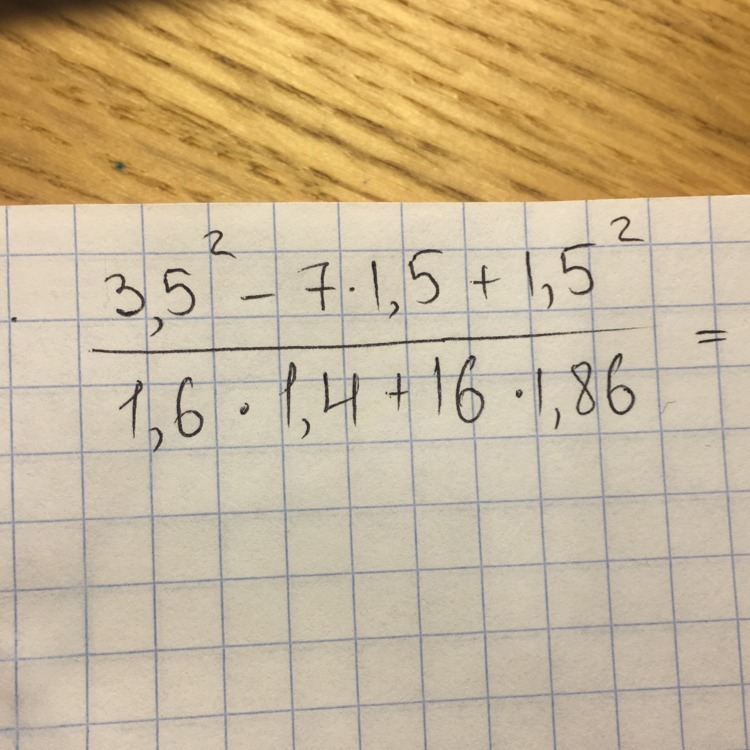 3,5² − 7·1,5 + 1,5²
1,6 · 1,4 + 16 · 1,86 =